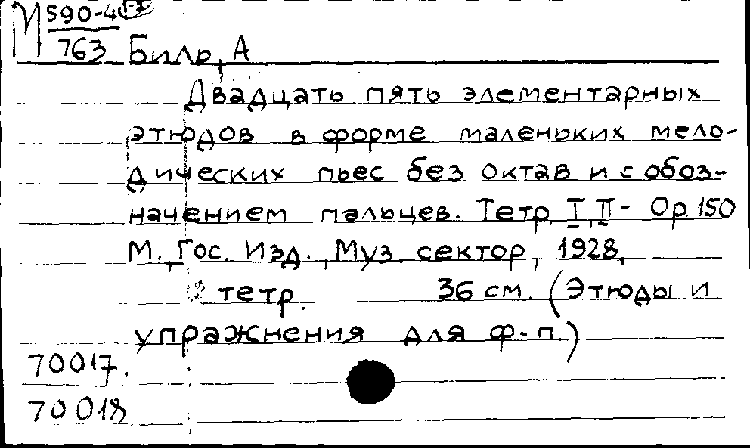 М 590-4
763 Биль, А
Двадцать пять элементарных
этюдов в форме маленьких мело-
дических пьес без октав и с обоз-
начением пальцев. Тетр. I, II - Op 150
М., Гос. Изд., Муз. сектор, 1928,
2 тетр. 36 см. (Этюды и
упражнения для ф-п.)
70017.
70018